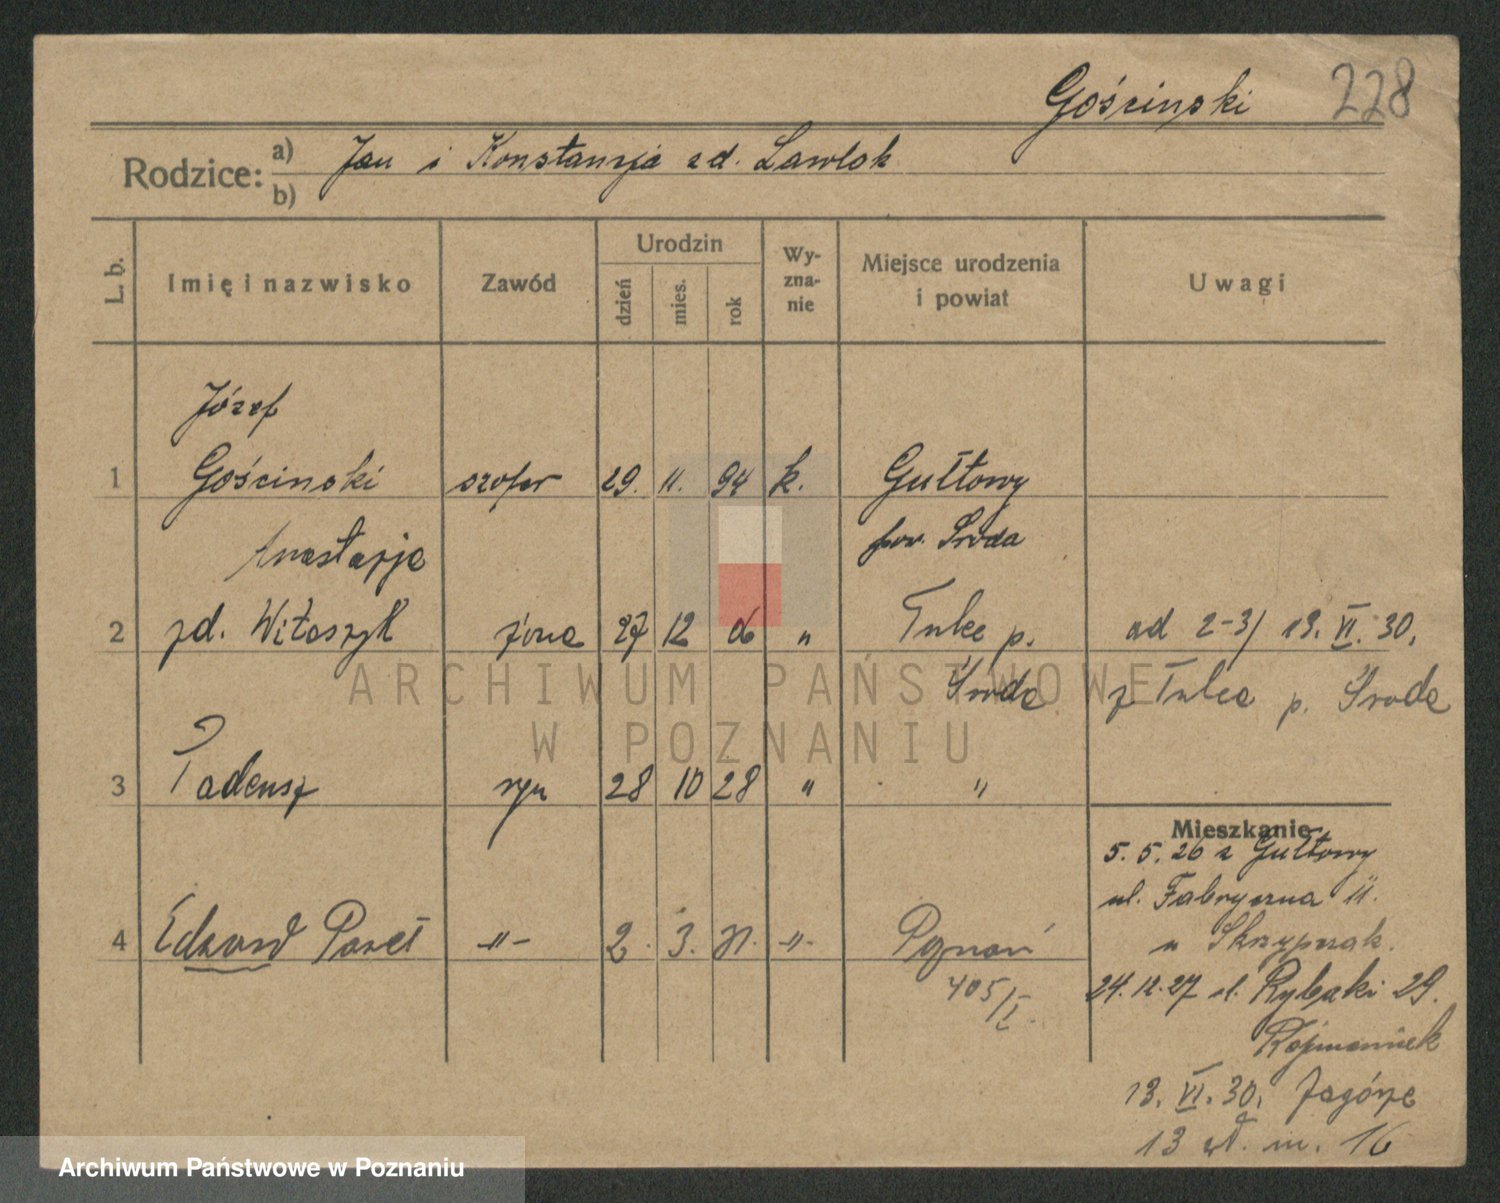 Gościnski 228
Rodzice: a) Jan i Konstancja zd. Lawlok
b)
L. b. Imię i nazwisko Zawód Urodzin dzień mies. rok Wyzna-nie Miejsce urodzenia i powiat Uwagi
Józef
1 Gościnski szofer 29. 11. 94 k. Gułtowy
Anastazja pow. Środa
2 zd. Witaszyk żona 27 12 06 " Tulce p. od 2-3/ 13. VI. 30.
Środa z Tulca p. Środa
3 Tadeusz syn 28 10 28 " "
Mieszkanie
5. 5. 26 z Gułtowy
ul. Fabryczna 11.
4 Edward Paweł -"- 2. 3. 31. -"- Poznań u Skrzypczak.
405/I. 24. 12. 27 ul. Rybaki 29.
13. VI. 30. Zagórze
13 m. 16
ARCHIWUM PAŃSTWOWE
W POZNANIU
Archiwum Państwowe w Poznaniu